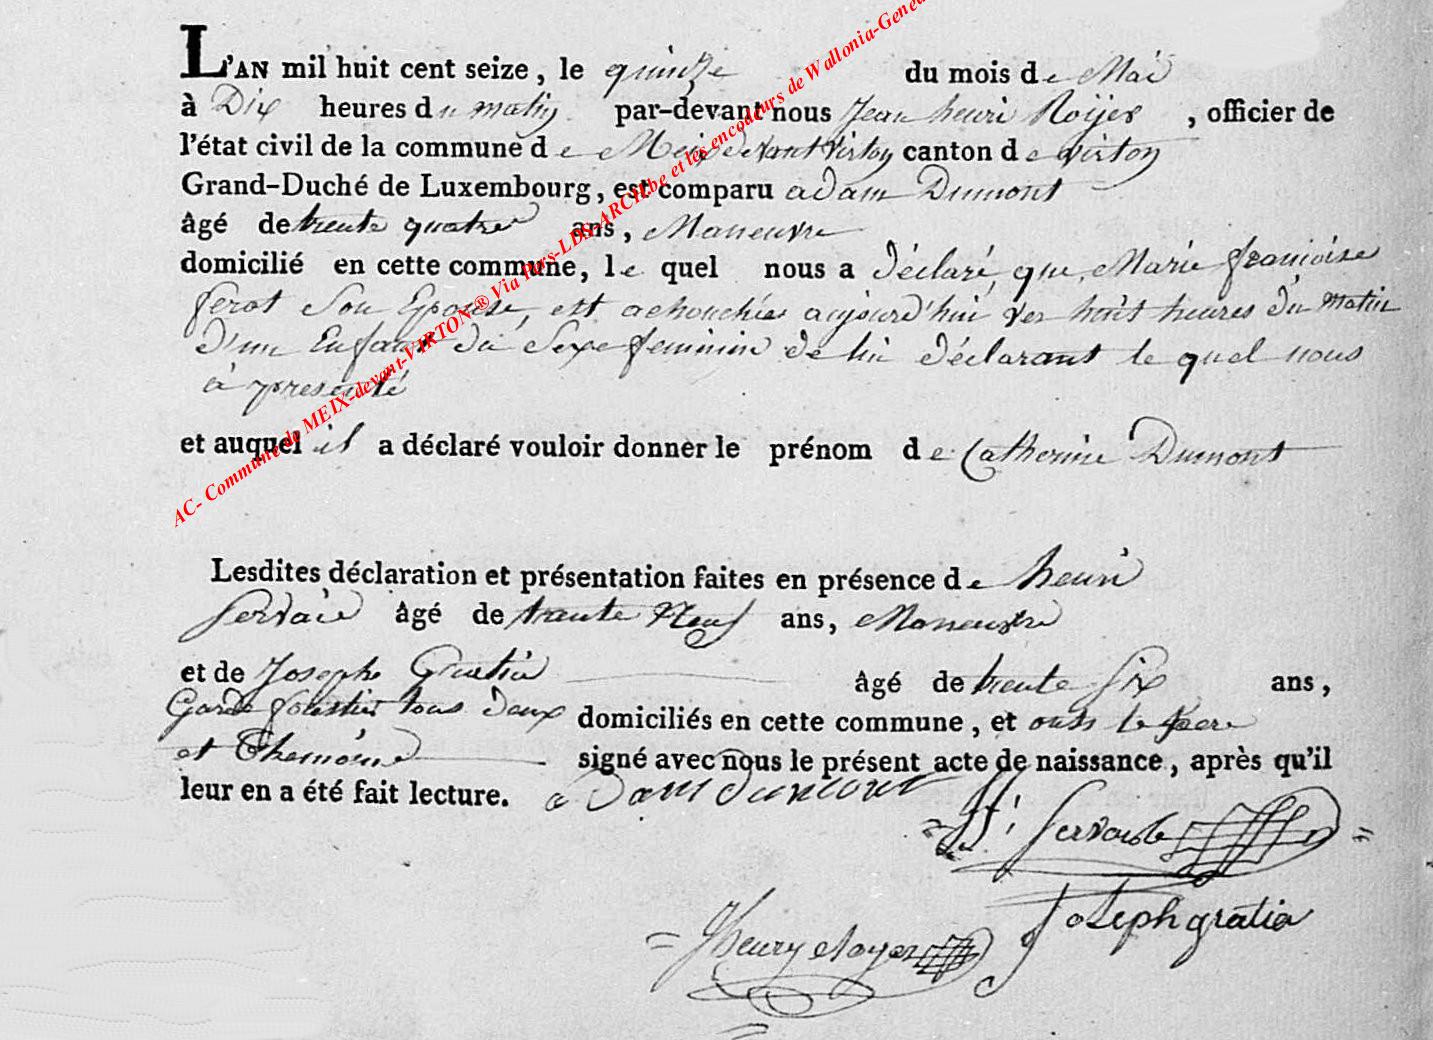 L'AN mil huit cent seize, le quinze du mois de Mai
à Dix heures du matin par-devant nous Jean henri Roijer, officier de
l'état civil de la commune de Meix devant Virton canton de virton
Grand-Duché de Luxembourg, est comparu adam Dumont
âgé de trente quatre ans, Maneuvre
domicilié en cette commune, le quel nous a déclaré, que Marie françoise
ferot son Epouse, est achouchée aujourd'hui ver huit heures du matin
d'un Enfant du Sexe feminin de lui déclarant le quel nous
à presenté
et auquel il a déclaré vouloir donner le prénom de Catherine Dumont
Lesdites déclaration et présentation faites en présence de henri
Servais âgé de trante Neuf ans, Maneuvre
et de Joseph Gratia âgé de trente Six ans,
Garde forestier tous deux domiciliés en cette commune, et onts le pere
et Themoins signé avec nous le présent acte de naissance, après qu'il
leur en a été fait lecture. adam dumont
H: Servais
Joseph gratia
J henry Royer
AC- Commune de MEIX-devant-VIRTON® Via Pars-LDS-ARCH.be et les encodeurs de Wallonia-Genea